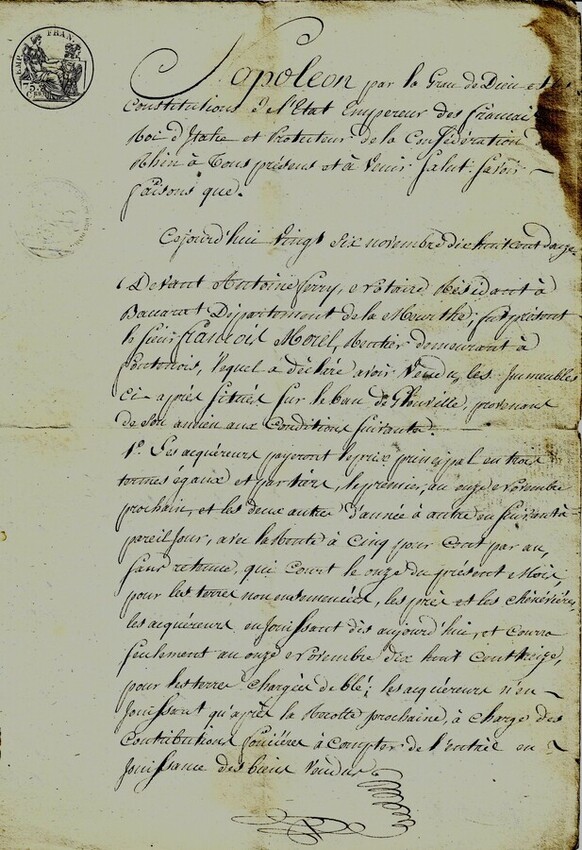 EMP. FRAN.
Napoleon par la Grace de Dieu et les
Constitutions de l'Etat Empereur des francais
Roi d'Italie et Protecteur de la Confédération du
Rhin à Tous présens et à Venir Salut. Savoir
faisons que.
Cejourd'hui Vingt Six novembre dix huit cent douze
Devant Antoine ferry, Notaire Résidant à
Baccarat Département de la Meurthe, fut présent
le Sieur francois Morel, Rentier demeurant à
lequel a déclaré avoir Vendu, les Immeubles
Ci-après Situés Sur le ban de provenans
de Son ancien aux Conditions Suivantes.
1°. Les acquéreurs payeront le prix principal en trois
termes égaux et par tiers, le premier, au onze Novembre
prochain, et les deux autres d'année à autre en Suivant à
pareil jour, avec la Rente à Cinq pour Cent par an,
Sans retenue, qui Court le onze du présent Mois,
pour les terres non ensemencées, les prés et les chènevières,
les acquéreurs en Jouissant dès aujourd'hui, et Courra
Seulement au onze Novembre dix huit Cent treize,
pour les terres Chargées de blé; les acquéreurs n'en
Jouissant qu'après la Récolte prochaine, à charge des
Contributions foncières à Compter de l'entrée en
Jouissance des biens Vendus